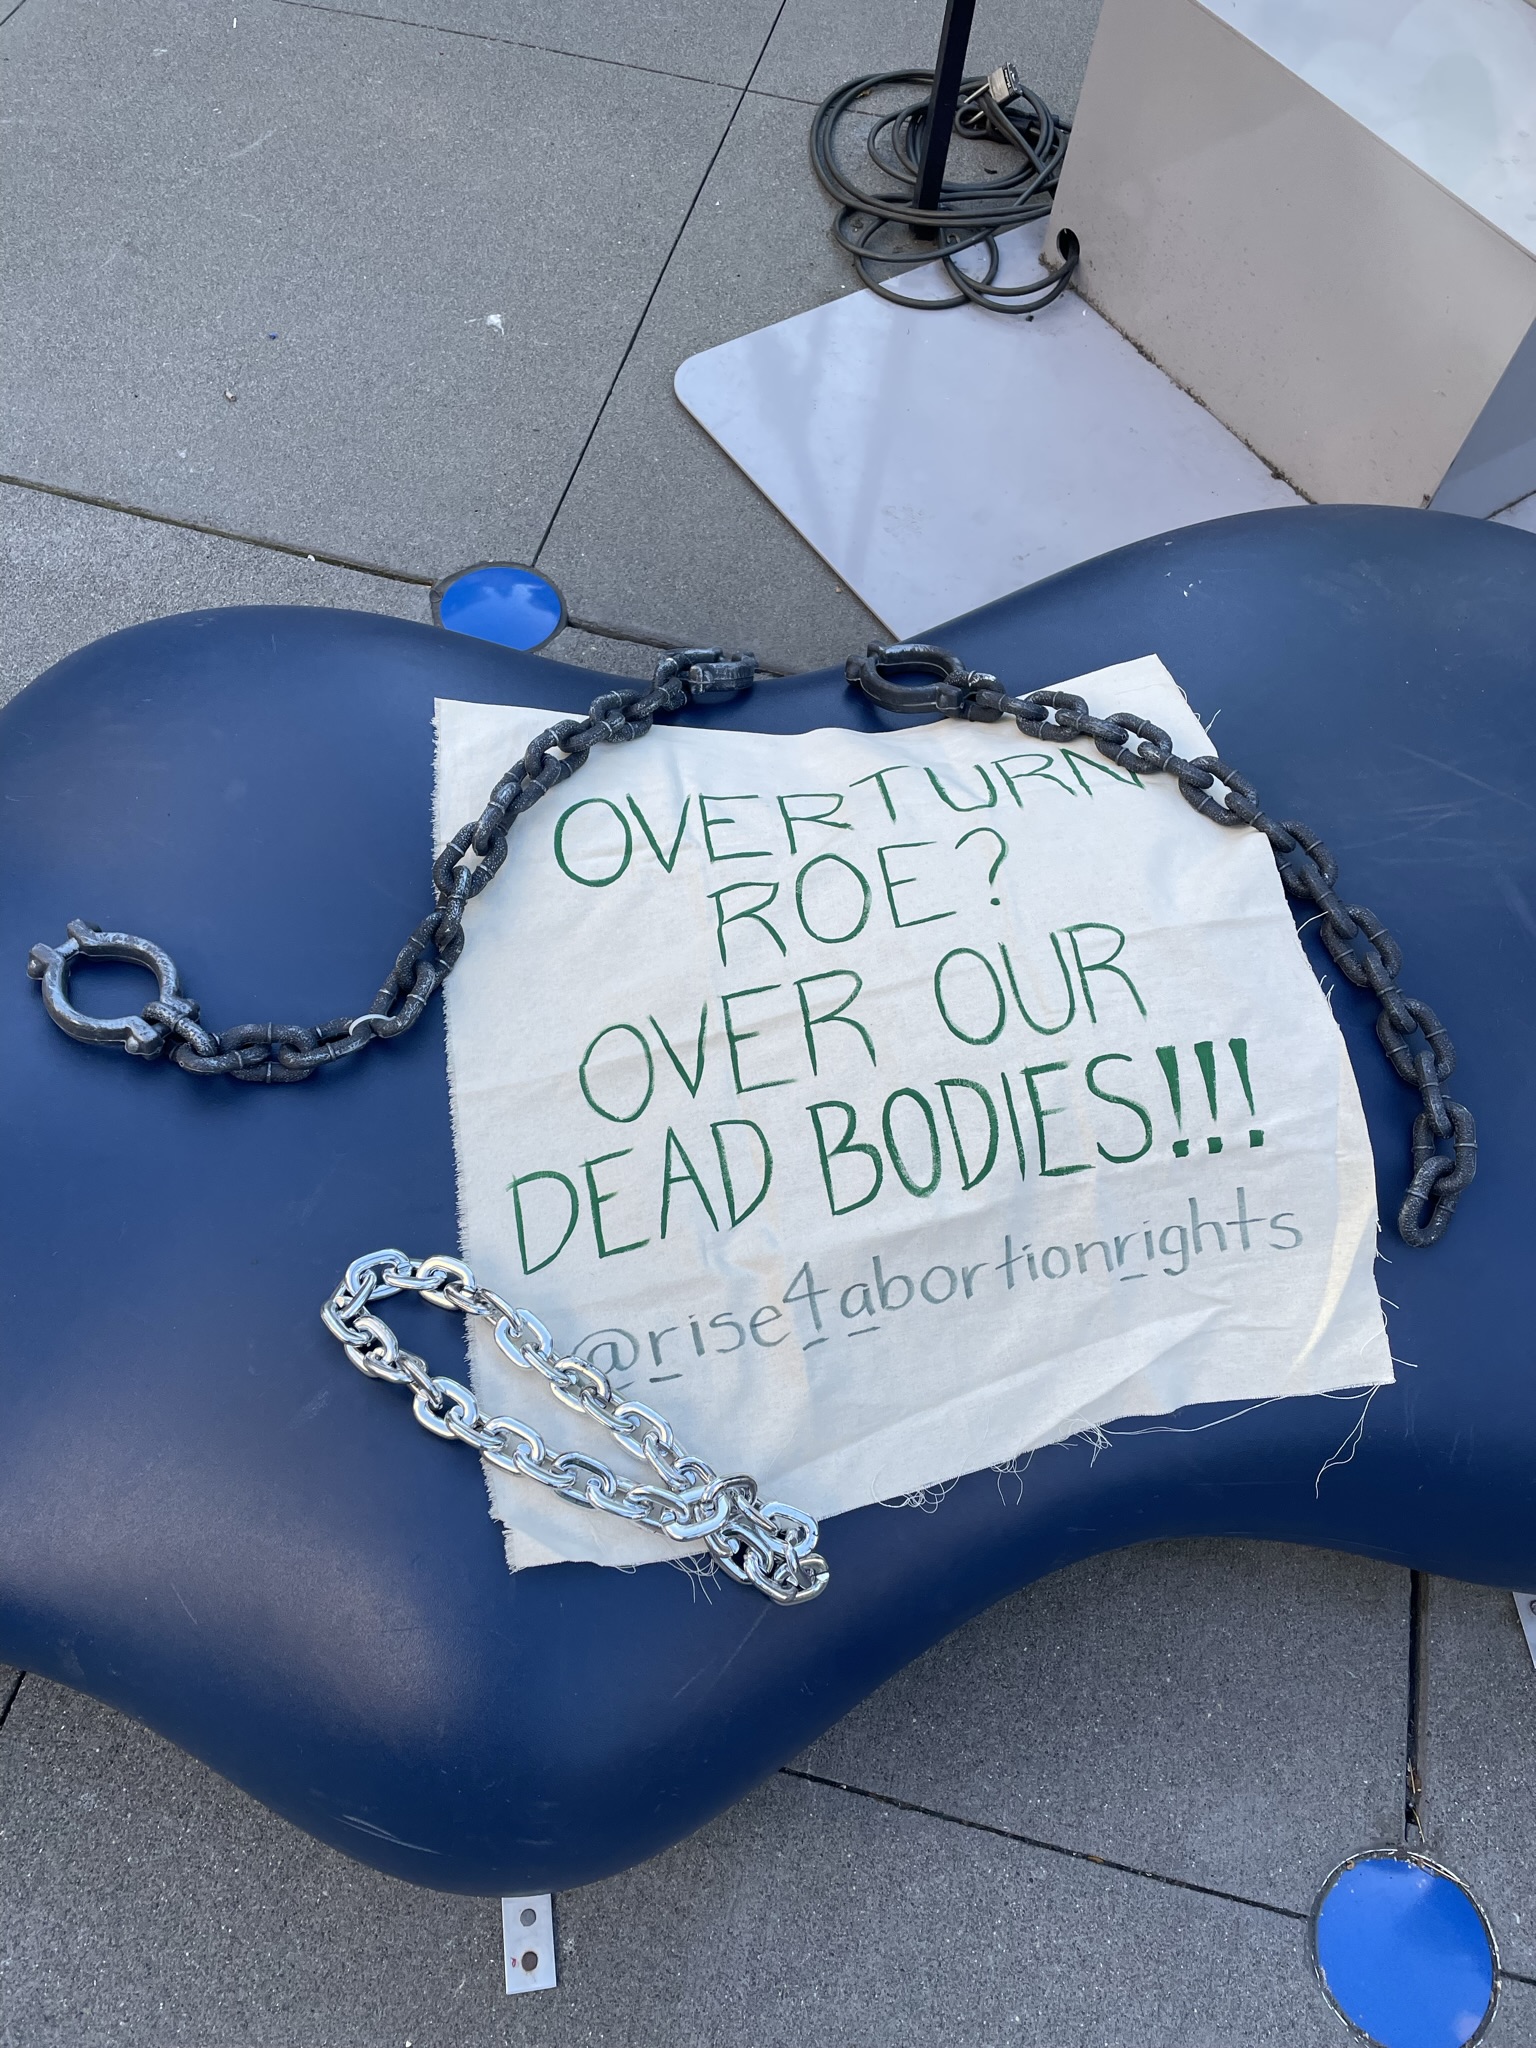 OVERTURN
ROE?
OVER OUR
DEAD BODIES!!!
@rise4abortionrights